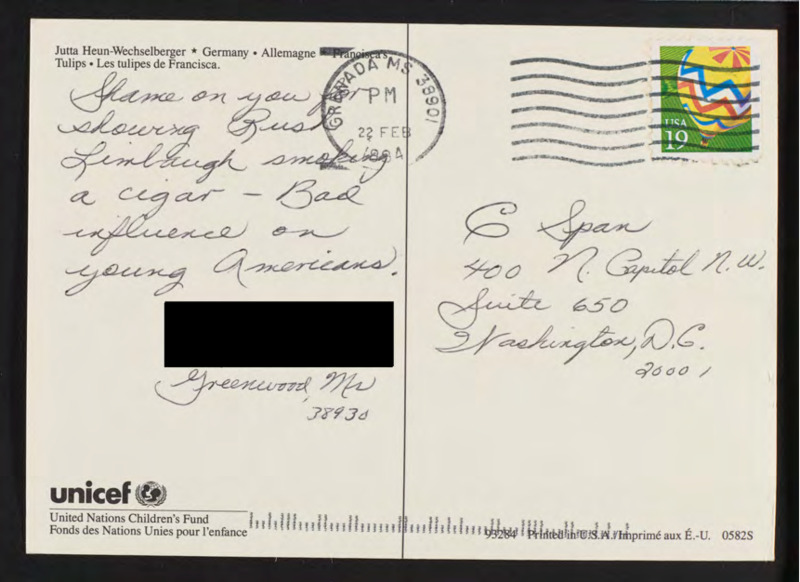 Jutta Heun-Wechselberger ★ Germany • Allemagne ★ Francisca's
Tulips • Les tulipes de Francisca.
Shame on you for
showing Rush
Limbaugh smoking
a cigar – Bad
influence on
young Americans.
Greenwood, Ms
38930
GRENADA MS 38901
PM
22 FEB
1994
USA
19
C Span
400 N. Capitol N.W.
Suite 650
Washington, D.C.
20001
unicef
United Nations Children's Fund
Fonds des Nations Unies pour l'enfance
93284 Printed in U.S.A./Imprimé aux É.-U. 0582S